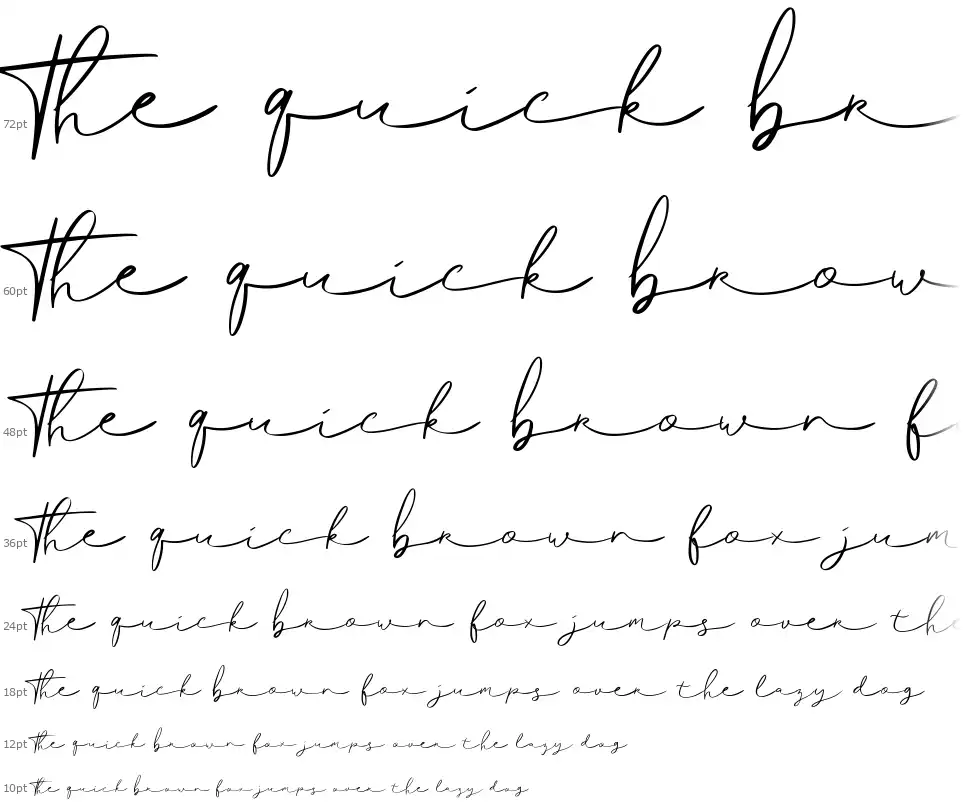 72pt The quick br
60pt The quick brow
48pt The quick brown f
36pt The quick brown fox jum
24pt The quick brown fox jumps over the
18pt The quick brown fox jumps over the lazy dog
12pt The quick brown fox jumps over the lazy dog
10pt The quick brown fox jumps over the lazy dog